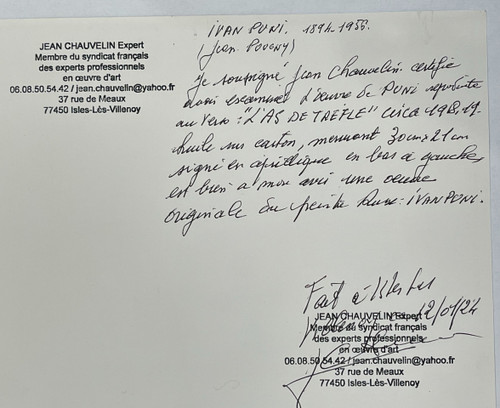 JEAN CHAUVELIN Expert
Membre du syndicat français
des experts professionnels
en œuvre d'art
06.08.50.54.42 / jean.chauvelin@yahoo.fr
37 rue de Meaux
77450 Isles-Lès-Villenoy
IVAN PUNI. 1894-1956.
(Jean POUGNY)
Je soussigné Jean Chauvelin certifie
avoir examiné l'œuvre de PUNI reproduite
au verso : "L'AS DE TRÈFLE" circa 1918,19
huile sur carton, mesurant 30 cm x 21 cm
signé en cyrillique en bas à gauche,
est bien à mon avis une œuvre
originale du peintre russe : IVAN PUNI.
Fait à Isles Les
Villenoy 12/01/24
JEAN CHAUVELIN Expert
Membre du syndicat français
des experts professionnels
en œuvre d'art
06.08.50.54.42 / jean.chauvelin@yahoo.fr
37 rue de Meaux
77450 Isles-Lès-Villenoy